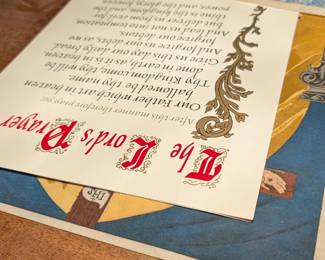 The Lord's Prayer
After this manner therefore pray ye
Our Father which art in heaven
hallowed be thy name
Thy Kingdom come thy will be
done in earth as it is in heaven
Give us this day our daily bread
And forgive us our debts
forgive our debtors
And lead us not into temptation
but deliver us from evil for
thine is the kingdom and the
power, and the glory,